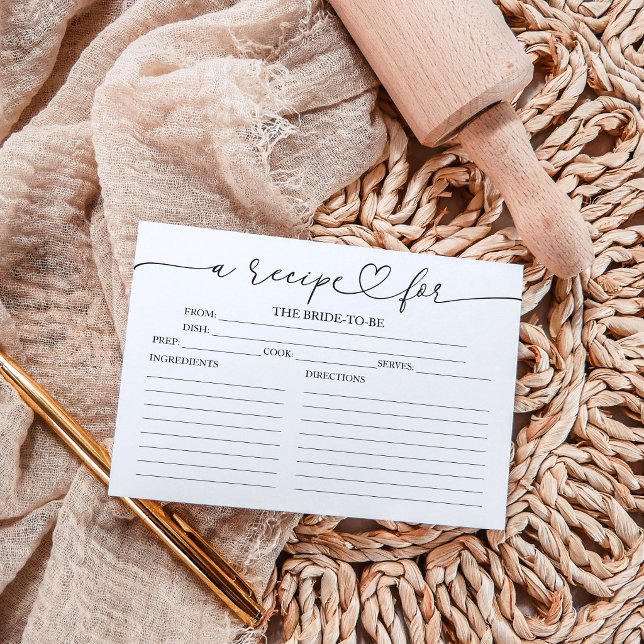 a recipe for
THE BRIDE-TO-BE
FROM:
DISH:
PREP: COOK: SERVES:
INGREDIENTS DIRECTIONS